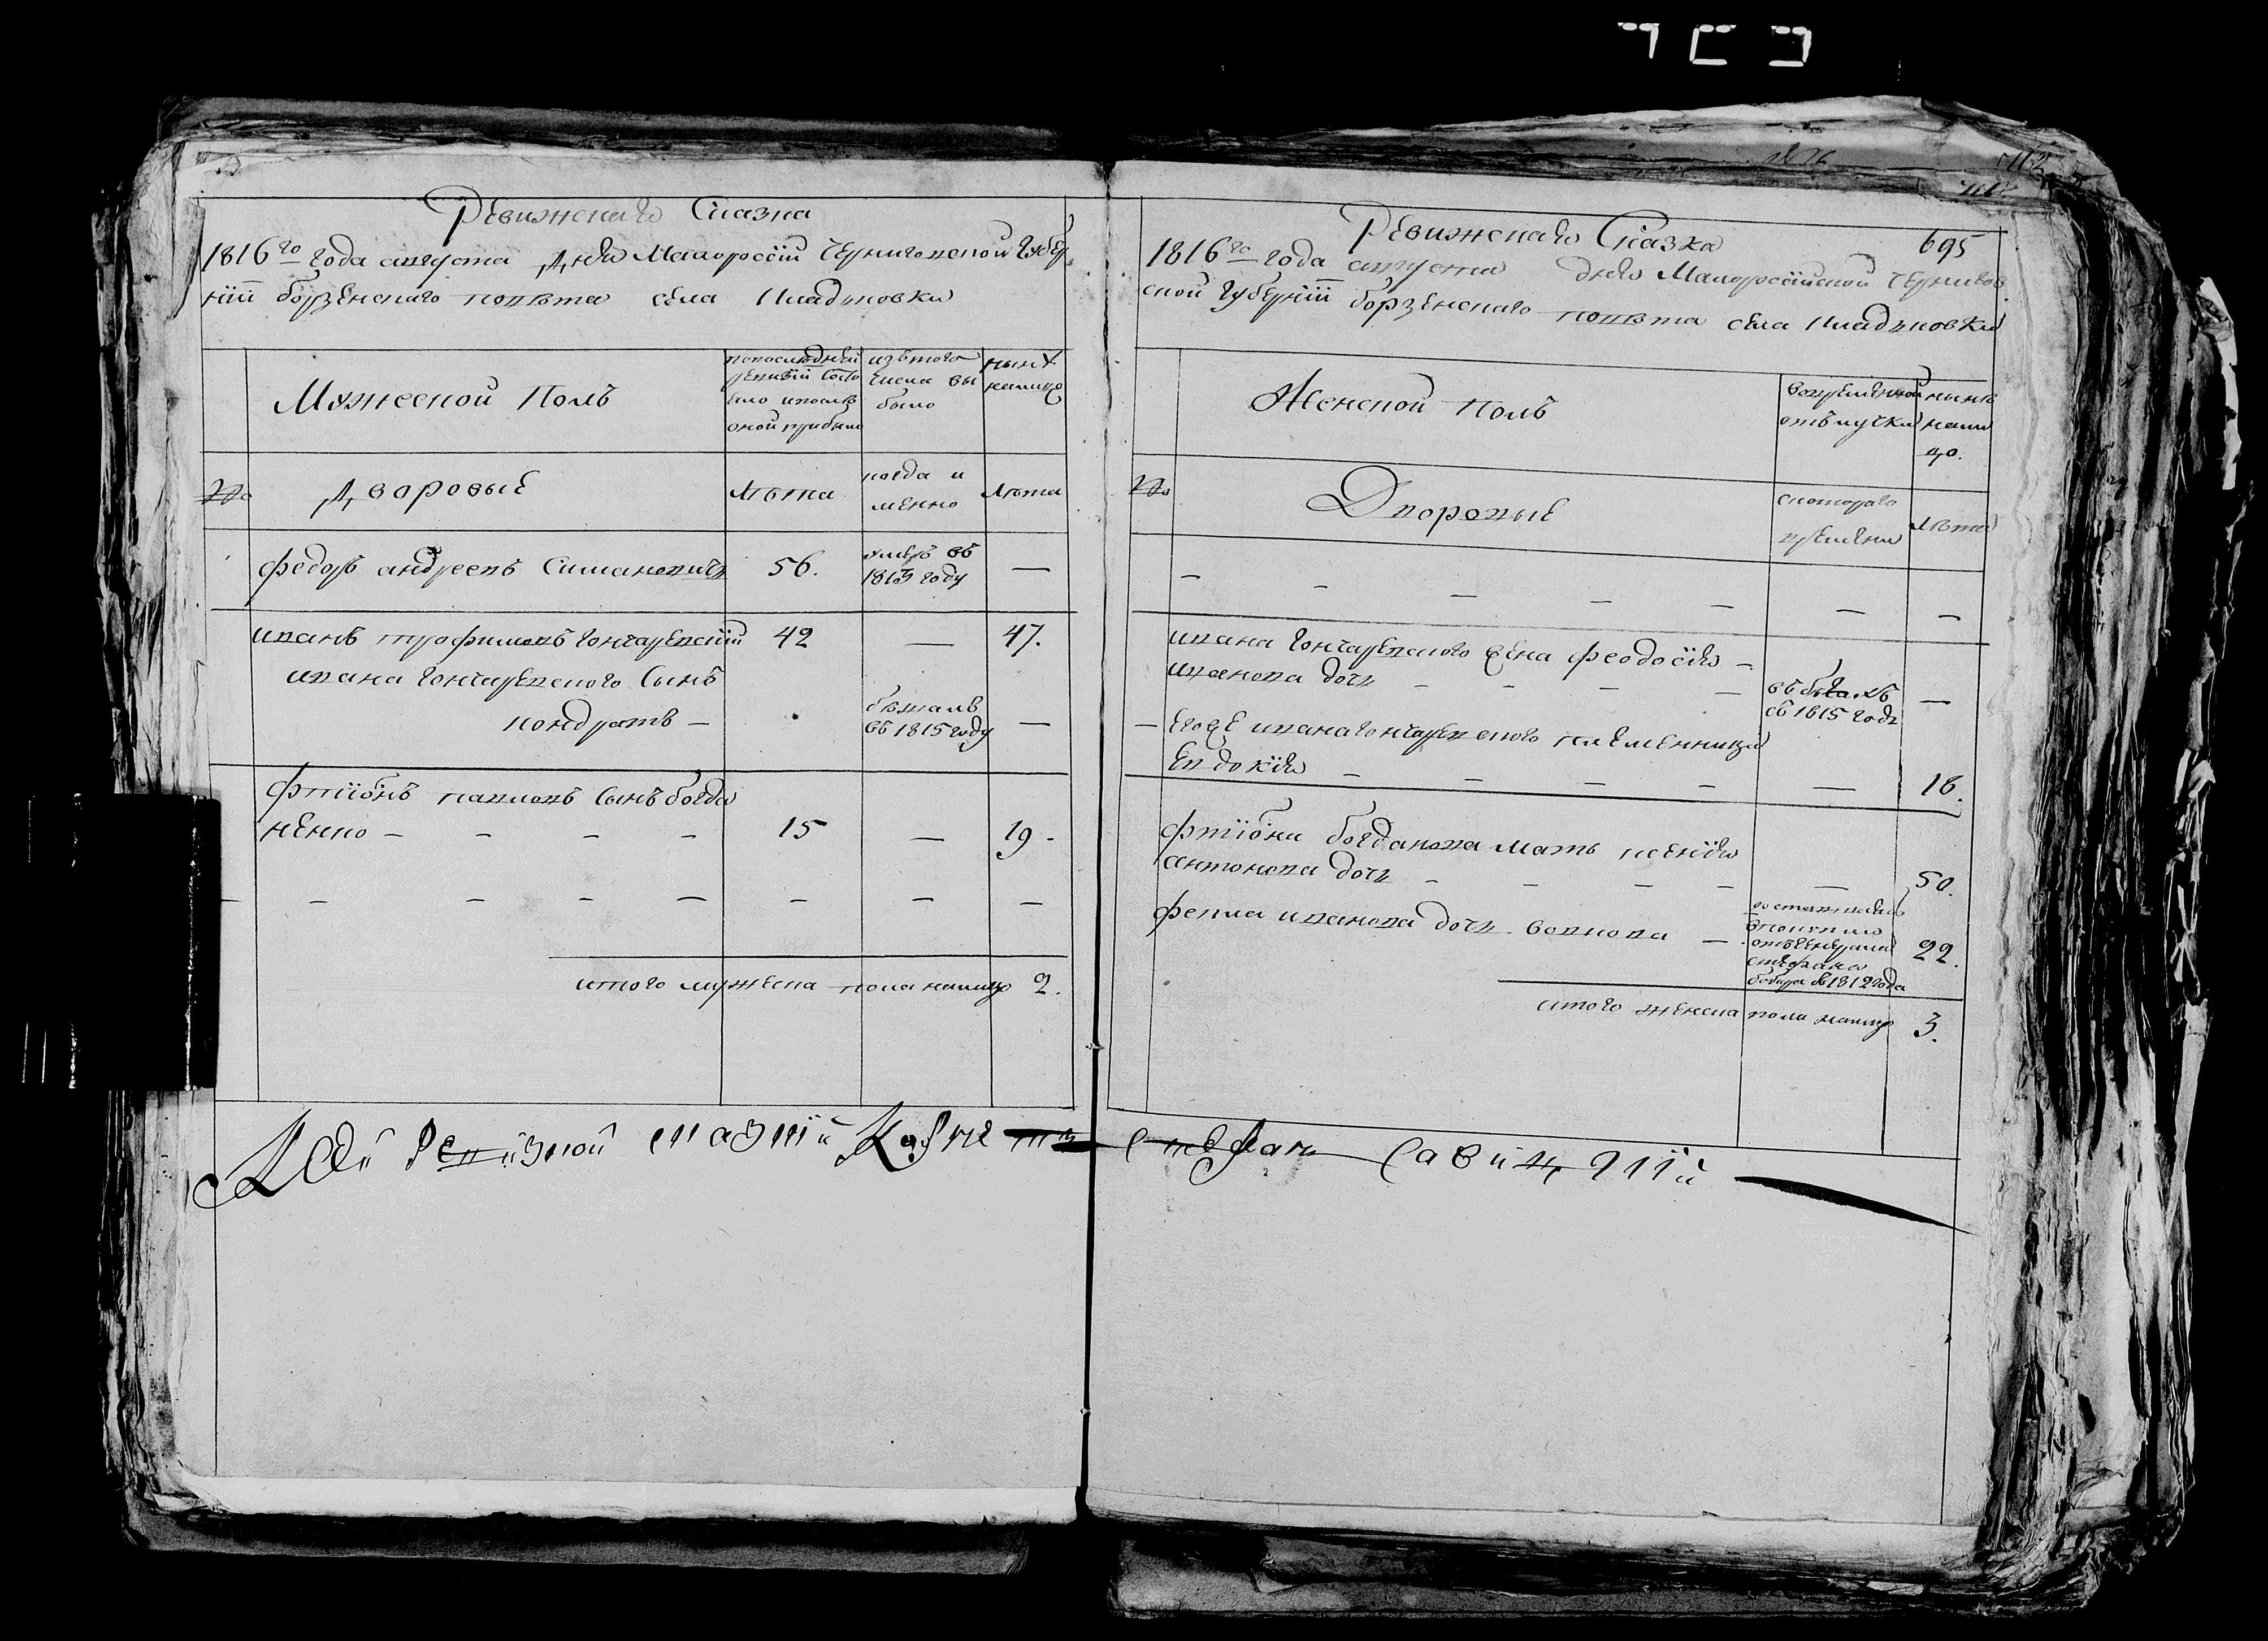 Ревижская Сказка
1816го года августа дня Малороссiй Черниговской Губер
нiи борзенского повѣта села Иладиковки
Мужеской Полъ
попоследней
ревизiи состо
яло ипослѣ
оной прибыло
изътого
числа вы
было
нынѣ
налицо
№
Дворовые
Лѣта
когда и
менно
Лѣта
федоръ андреевъ Симановичъ
56.
умеръ въ
1813 году
—
иванъ трофимовъ гончаревскiй
42
—
47.
ивана гончаревского Сынъ
кондратъ —
бѣжалъ
въ 1815 году
—
фтiонъ павловъ Сынъ богда
ненко — — — —
15
—
19 -
— — — — — — — —
итого мужеска пола налицо 2.
Ревижская Сказка
695
1816го года августа дня Малороссiйской Чернигов
ской губернiи борзенского повѣта села Иладиковки
Женской Полъ
вовременной
отълучки
нынѣ
нали
цо.
№
Дворовые
скоторого
времени
Лѣта
— — — — — — —
ивана гончаревского жена феодосiя —
иванова дочь — — — —
въ бѣгахъ
съ 1815 году
—
— Егоже ивана гончаревского племенница
Евдокiя — — — — — —
16.
фтiона богданова мать ксенiя
антонова дочь — — — — —
50.
фекла иванова дочь волкова —
22.
съ 1812 года
итого женска пола налицо 3.
Кѣ Сей Ревiзкой сказкiи
стефанъ Савицкiй